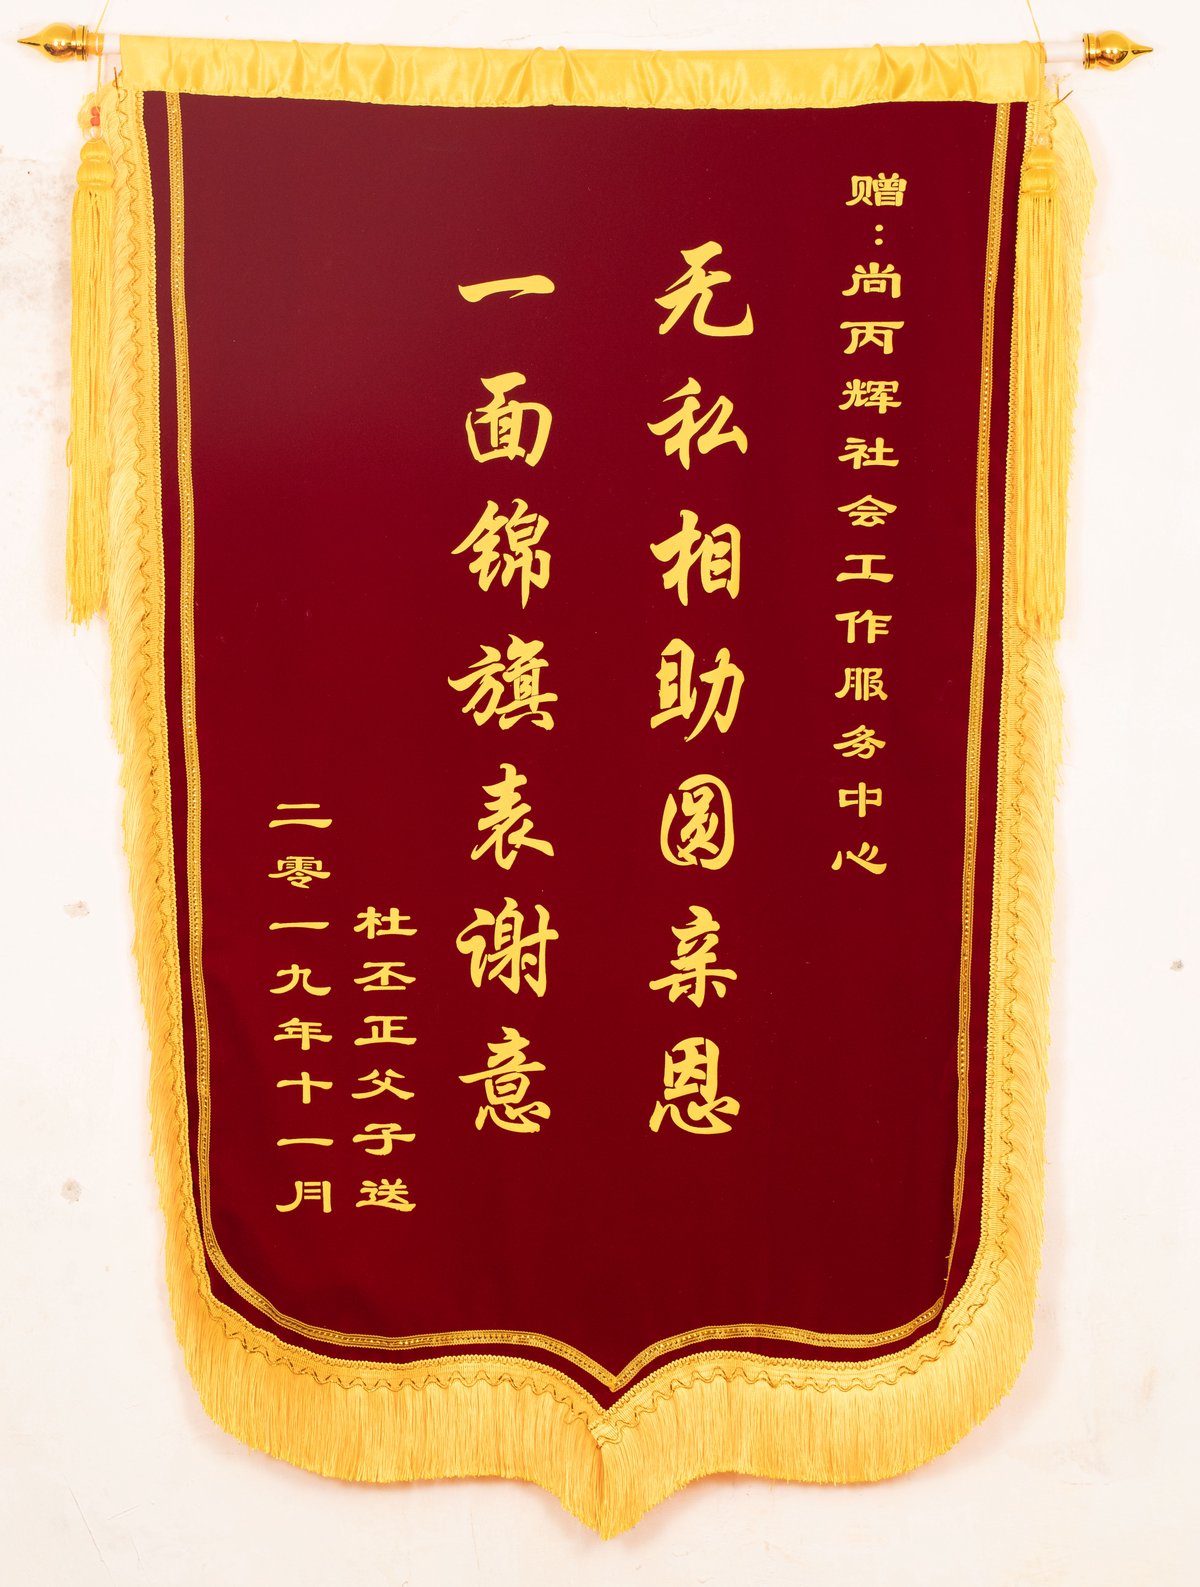 赠：尚丙辉社会工作服务中心
无私相助圆亲恩
一面锦旗表谢意
杜丕正父子送
二零一九年十一月